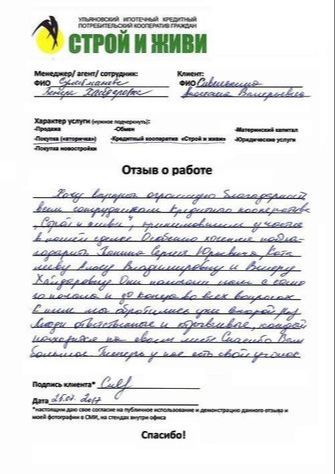 УЛЬЯНОВСКИЙ ИПОТЕЧНЫЙ КРЕДИТНЫЙ
ПОТРЕБИТЕЛЬСКИЙ КООПЕРАТИВ ГРАЖДАН
СТРОЙ И ЖИВИ
Менеджер/ агент/ сотрудник:
ФИО
Клиент:
ФИО
Валерьевна
Характер услуги (нужное подчеркнуть):
-Продажа -Обмен -Материнский капитал
-Покупка (вторичка) -Кредитный кооператив «Строй и живи» -Юридические услуги
-Покупка новостройки
Отзыв о работе
Хочу выразить огромную благодарность
всем сотрудникам Кредитного кооператива
„Строй и живи", принимавшим участие
в нашей сделке Особенно хочется побла-
годарить Сергея Юрьевича,
Алису Владимировну и Венеру
Хайдаровну Они помогали нам с само
го начала и до конца во всех вопросах
С ними мы обратились уже второй раз
Люди ответственные и отзывчивые, каждый
находится на своем месте Спасибо Вам
большое Теперь у нас есть свой уголок.
Подпись клиента*
Дата 25.07.2017
*настоящим даю свое согласие на публичное использование и демонстрацию данного отзыва и
моей фотографии в СМИ, на стендах внутри офиса
Спасибо!